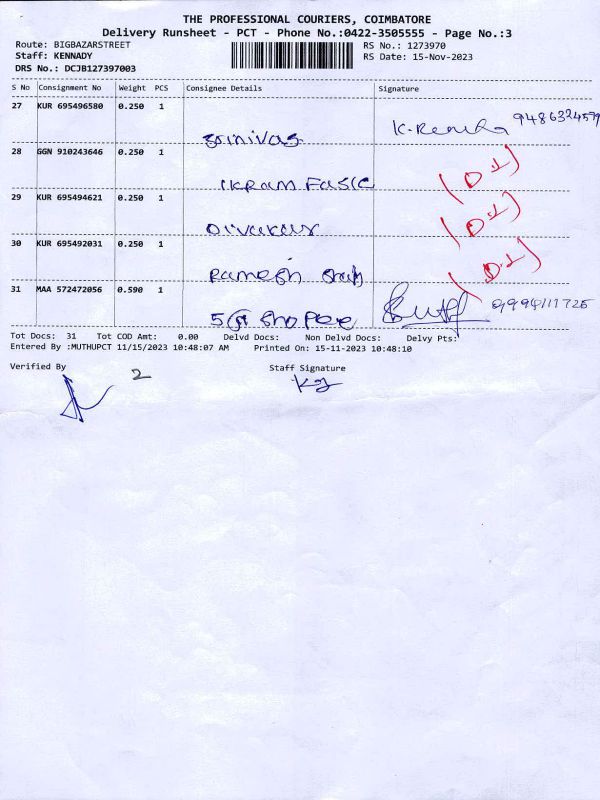 THE PROFESSIONAL COURIERS, COIMBATORE
Delivery Runsheet - PCT - Phone No.:0422-3505555 - Page No.:3
Route: BIGBAZARSTREET RS No.: 1273970
Staff: KENNADY RS Date: 15-Nov-2023
DRS No.: DCJB127397003
S No Consignment No Weight PCS Consignee Details Signature
27 KUR 695496580 0.250 1
Srinivas K.Renuka 9486324579
28 GGN 910243646 0.250 1
Ikram Fasic (D1)
29 KUR 695494621 0.250 1
Divakar (D1)
30 KUR 695492031 0.250 1
Ramesh (D.1)
31 MAA 572472056 0.590 1
5 Shoppee
Tot Docs: 31 Tot COD Amt: 0.00 Delvd Docs: Non Delvd Docs: Delvy Pts:
Entered By :MUTHUPCT 11/15/2023 10:48:07 AM Printed On: 15-11-2023 10:48:10
Verified By 2 Staff Signature